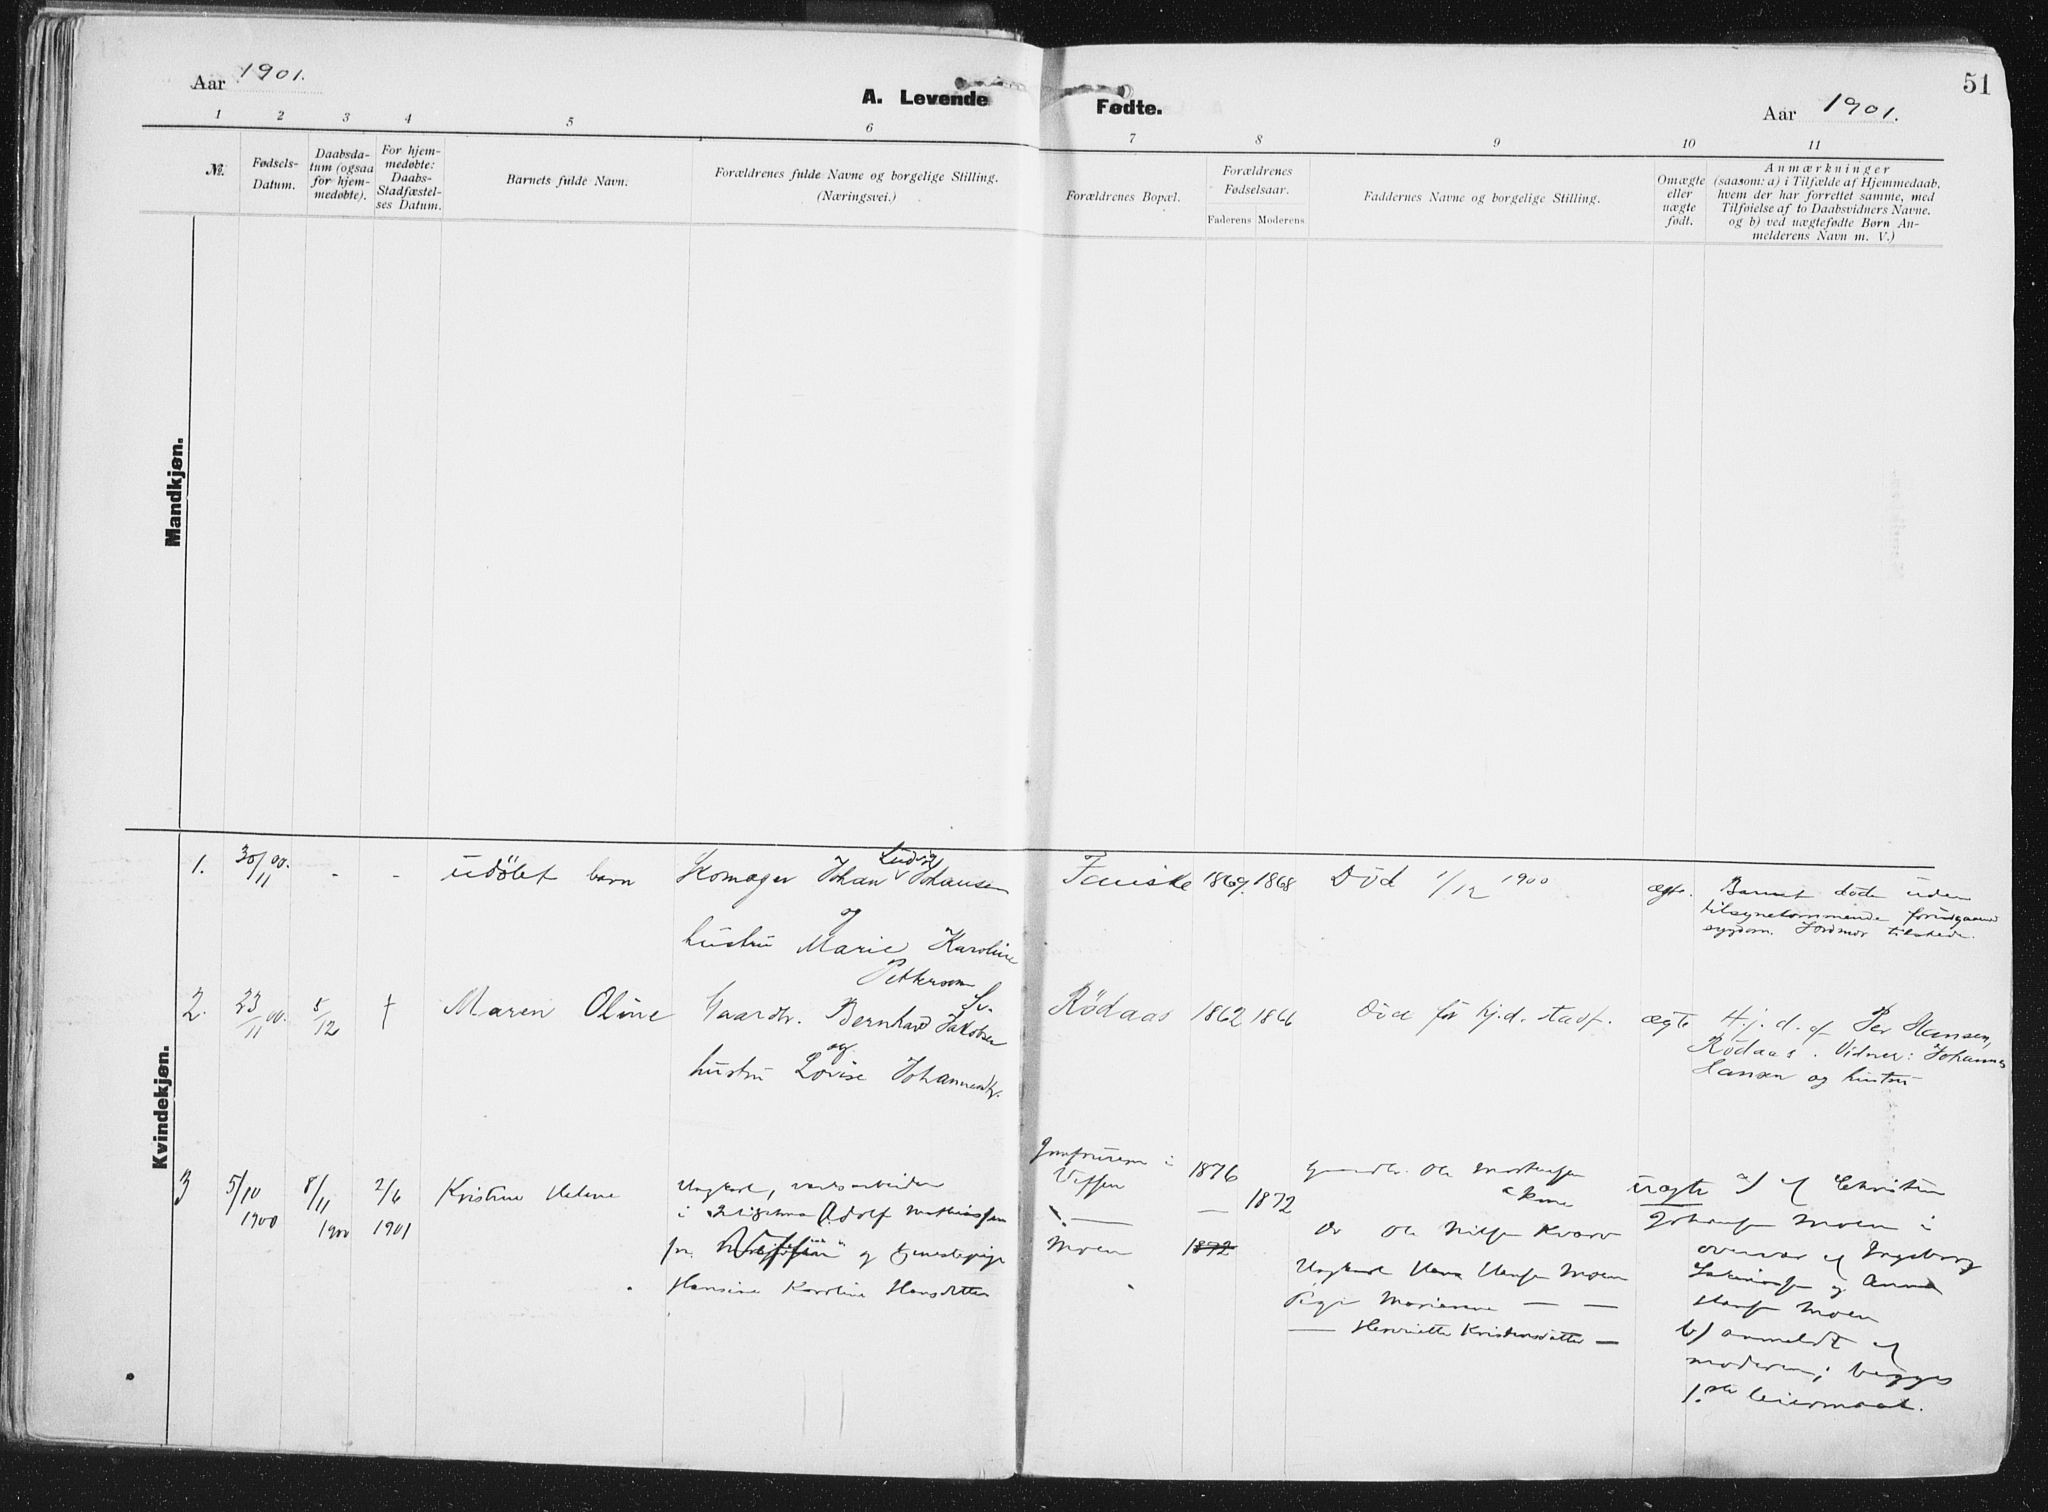 Aar 1901.
A. Levende Fødte.
Aar 1901.
51
1 2 3 4 5 6 7 8 9 10 11
№.
Fødsels-
Datum.
Daabsda-
tum (ogsaa
for hjem-
medøbte).
For hjem-
medøbte:
Daabs-
Stadfæstel-
ses Datum.
Barnets fulde Navn.
Forældrenes fulde Navne og borgelige Stilling.
(Næringsvei.)
Forældrenes Bopæl.
Forældrenes
Fødselsaar.
Faderens Moderens.
Faddernes Navne og borgelige Stilling.
Omægte
eller
uægte
født.
Anmærkninger
(saasom: a) i Tilfælde af Hjemmedaab,
hvem der har forrettet samme, med
Tilføielse af to Daabsvidners Navne.
og b) ved uægtefødte Børn An-
melderens Navn m. V.)
Mandkjøn.
Kvindekjøn.
1.
30/11 00.
- -
udöbt barn
Skomager Johan Ludvig Johansen
og
hustru Marie Karoline
Pettersen
Fauiske
1869. 1868
Död 1/12 1900
ægte.
Barnet døde uden
tilsynekommende forudgaaend
sygdom. Jordmor tilstede.
2.
23/11 00.
5/12
†
Maren Oline
Gaardbr. Bernhard Jakobsen
og
hustru Lovise Johannesdtr.
Rödaas
1862 1866
död för hj.d. stadf.
ægte
Hj.d. af Per Hansen,
Rödaas. Vidner: Johannes
Hansen og hustru
3
5/10
1900
8/11
1900
2/6
1901
Kristine Helene
Ungkarl,
i Adolf Mathiassen
fr. og tjenestepige
Hansine Karoline Hansdatter
i
Vefsen
1876
— 1872
Moen
1892
Gaardbr. Ole Mortensen
& kone
Do Ole Nilsen Kvarv
Ungkarl Hans Hansen Moen
Pige Marianne — —
— Henriette Kristensdatter —
uægte
a) af Christen
Johansen Moen i
overvær af Ingeborg
og Anna
Hansen Moen
b) anmeldt af
moderen; begges
1.ste leiermaal.